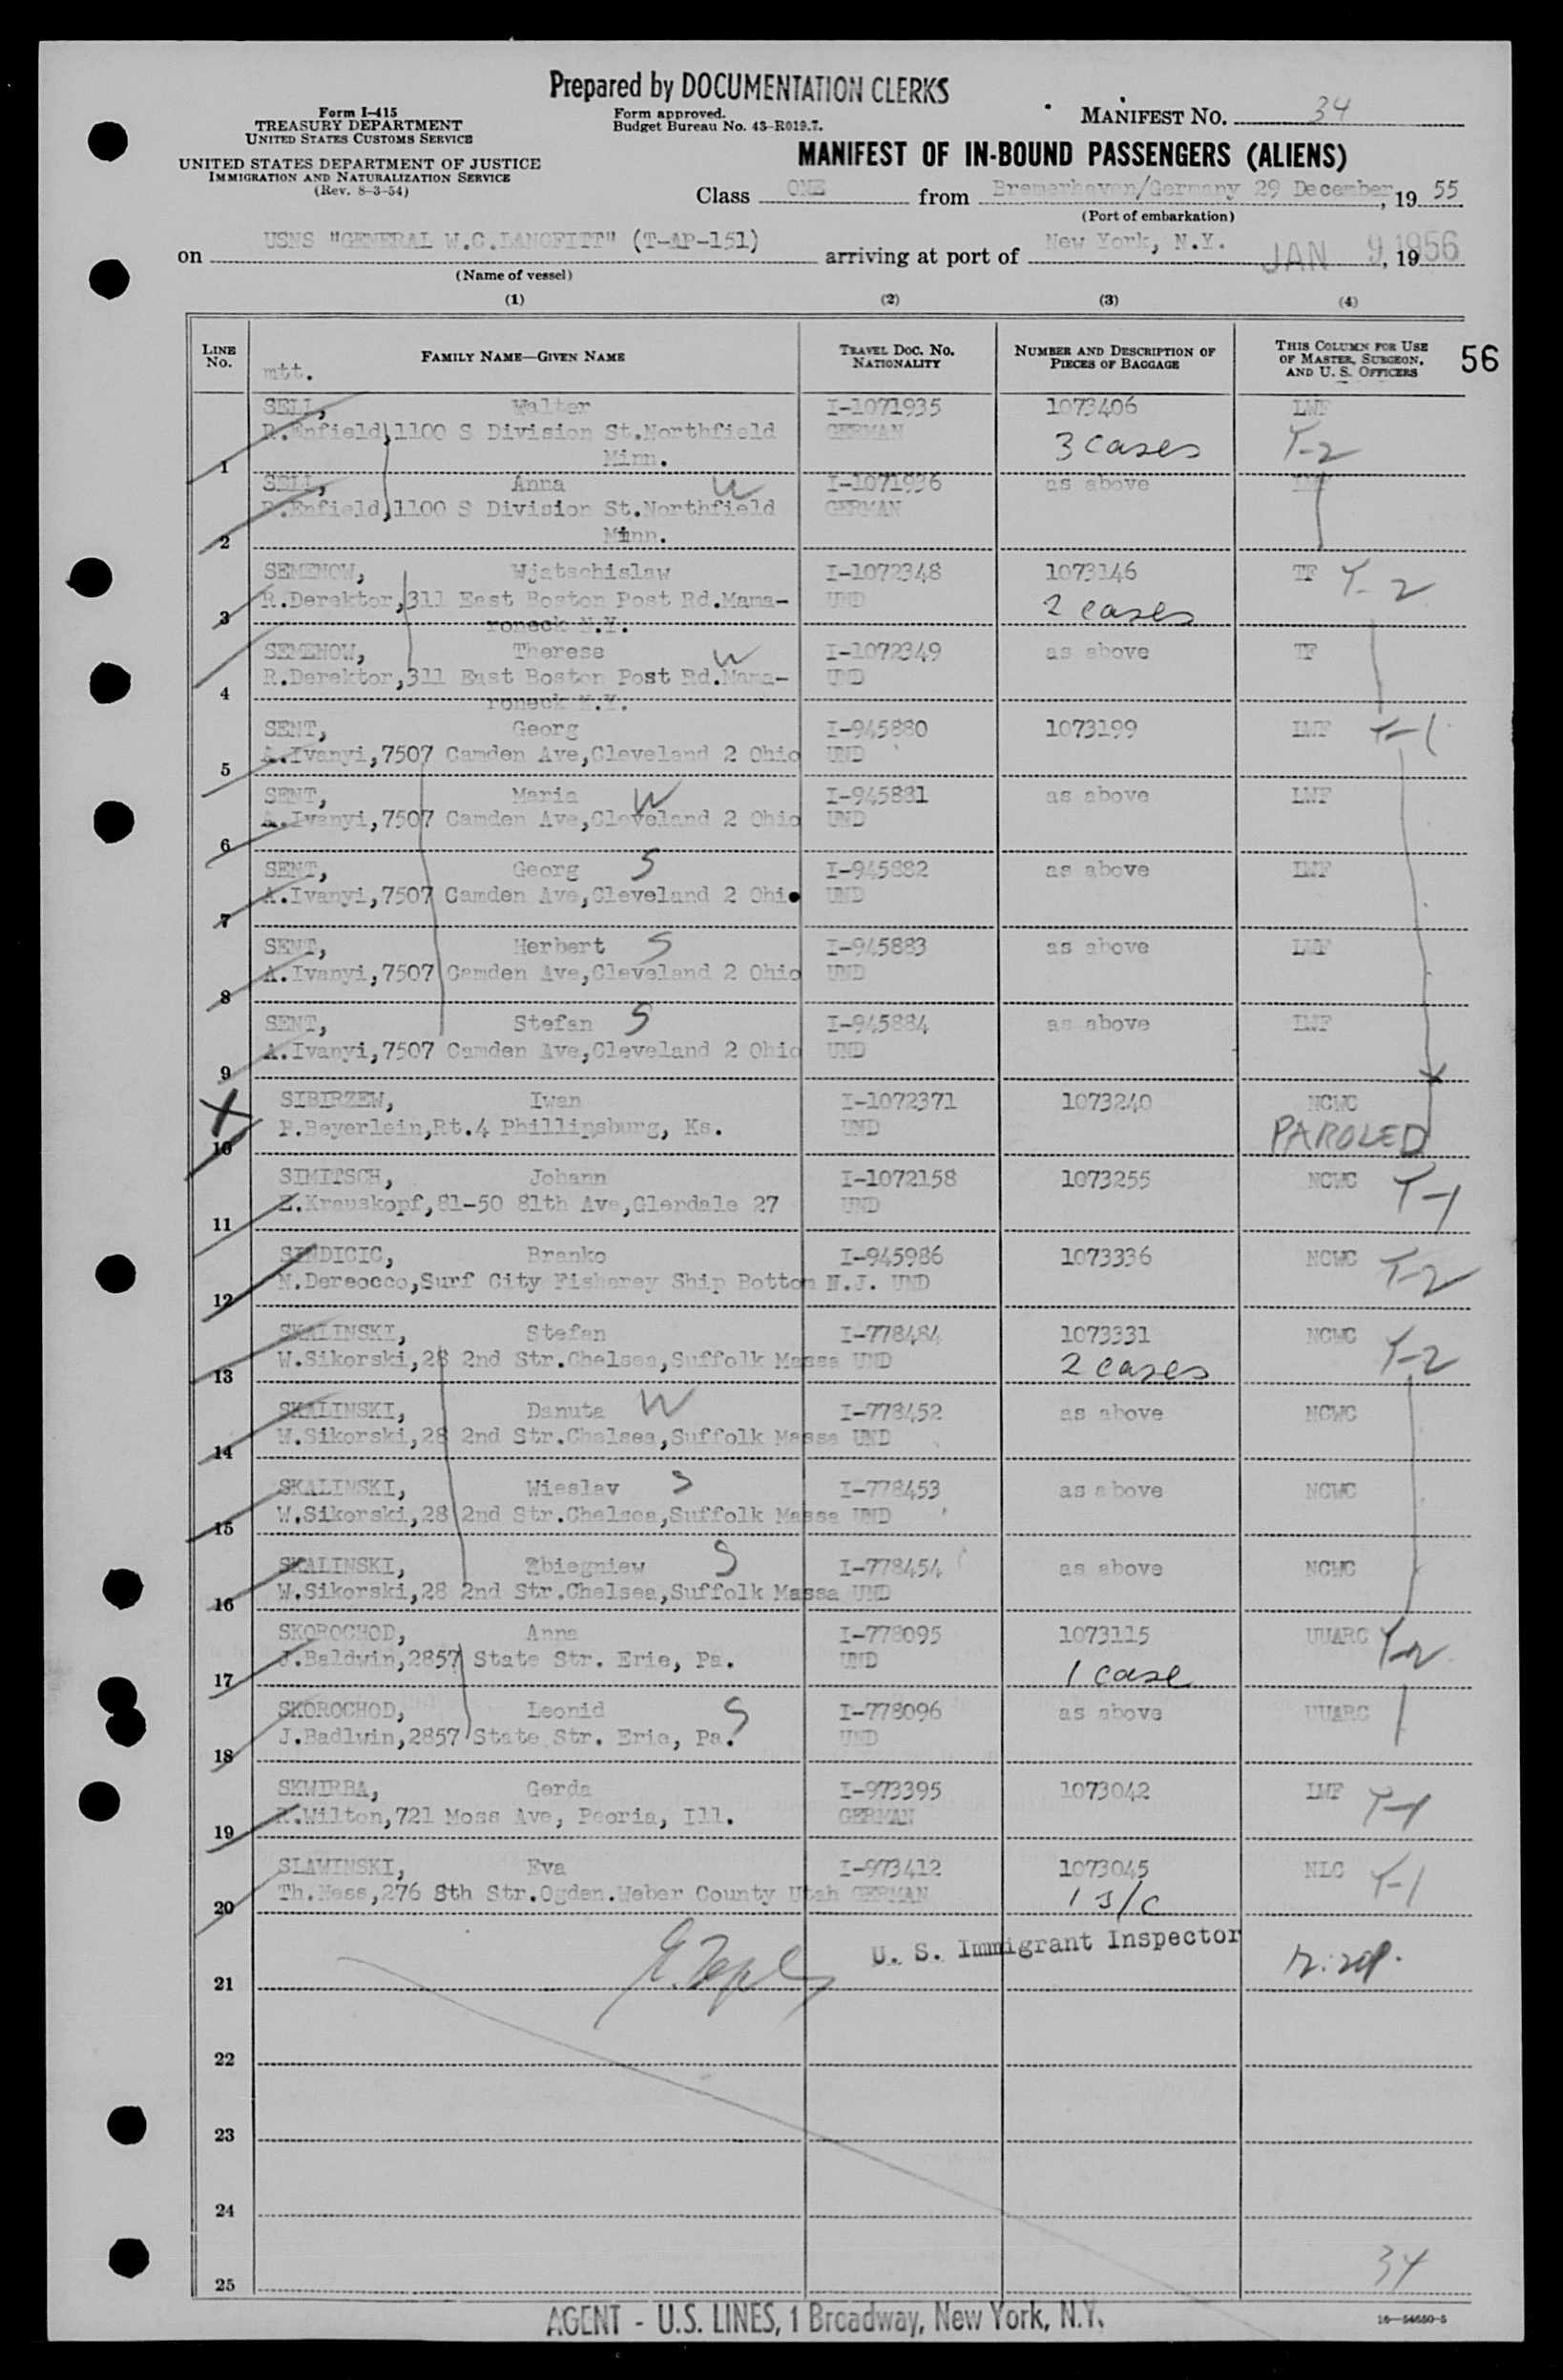 Prepared by DOCUMENTATION CLERKS
Form I-415
TREASURY DEPARTMENT
UNITED STATES CUSTOMS SERVICE
UNITED STATES DEPARTMENT OF JUSTICE
IMMIGRATION AND NATURALIZATION SERVICE
(Rev. 8-3-54)
Form approved.
Budget Bureau No. 43-R019.7.
MANIFEST NO. 34
MANIFEST OF IN-BOUND PASSENGERS (ALIENS)
Class ONE from Bremerhaven/Germany 29 December, 19 55
(Port of embarkation)
on USNS "GENERAL W.C.LANGFITT" (T-AP-151) arriving at port of New York, N.Y. JAN 9, 1956
(Name of vessel)
(1) (2) (3) (4)
LINE NO. FAMILY NAME—GIVEN NAME TRAVEL DOC. NO. NATIONALITY NUMBER AND DESCRIPTION OF PIECES OF BAGGAGE THIS COLUMN FOR USE OF MASTER, SURGEON, AND U. S. OFFICERS 56
mtt.
SELL, Walter I-1071935 1073406 LWF
R.Enfield,1100 S Division St.Northfield GERMAN 3 cases T-2
1 Minn.
SELL, Anna W I-1071936 as above LWF
R.Enfield,1100 S Division St.Northfield GERMAN
2 Minn.
SEMENOW, Wjatschislaw I-1072348 1073146 TF T-2
R.Derektor,311 East Boston Post Rd.Mama- UND 2 cases
3 roneck N.Y.
SEMENOW, Therese W I-1072349 as above TF
R.Derektor,311 East Boston Post Rd.Mama- UND
4 roneck N.Y.
SENT, Georg I-945880 1073199 LWF T-1
A.Ivanyi,7507 Camden Ave,Cleveland 2 Ohio UND
5
SENT, Maria W I-945881 as above LWF
A.Ivanyi,7507 Camden Ave,Cleveland 2 Ohio UND
6
SENT, Georg S I-945882 as above LWF
A.Ivanyi,7507 Camden Ave,Cleveland 2 Ohio UND
7
SENT, Herbert S I-945883 as above LWF
A.Ivanyi,7507 Camden Ave,Cleveland 2 Ohio UND
8
SENT, Stefan S I-945884 as above LWF
A.Ivanyi,7507 Camden Ave,Cleveland 2 Ohio UND
9
X SIBIRZEW, Iwan I-1072371 1073240 NCWC
P.Beyerlein,Rt.4 Phillipsburg, Ks. UND PAROLED
10
SIMITSCH, Johann I-1072158 1073255 NCWC T-1
Z.Krauskopf,81-50 81th Ave,Glendale 27 UND
11
SINDICIC, Branko I-945986 1073336 NCWC T-2
N.Dereocco,Surf City Fisherey Ship Bottom N.J. UND
12
SKALINSKI, Stefan I-778484 1073331 NCWC T-2
W.Sikorski,28 2nd Str.Chelsea,Suffolk Massa UND 2 cases
13
SKALINSKI, Danuta W I-778452 as above NCWC
W.Sikorski,28 2nd Str.Chelsea,Suffolk Massa UND
14
SKALINSKI, Wieslav S I-778453 as above NCWC
W.Sikorski,28 2nd Str.Chelsea,Suffolk Massa UND
15
SKALINSKI, Zbiegniew S I-778454 as above NCWC
W.Sikorski,28 2nd Str.Chelsea,Suffolk Massa UND
16
SKOROCHOD, Anna I-778095 1073115 UUARC T-2
J.Baldwin,2857 State Str. Erie, Pa. UND 1 case
17
SKOROCHOD, Leonid S I-778096 as above UUARC
J.Badlwin,2857 State Str. Erie, Pa. UND
18
SKWIRBA, Gerda I-973395 1073042 LWF T-1
R.Wilton,721 Moss Ave, Peoria, Ill. GERMAN
19
SLAWINSKI, Eva I-973412 1073045 NLC T-1
Th.Ness,276 8th Str.Ogden.Weber County Utah GERMAN 1 S/C
20
U. S. Immigrant Inspector
21
22
23
24
34
25
AGENT - U.S. LINES, 1 Broadway, New York, N.Y.
16—54650-5